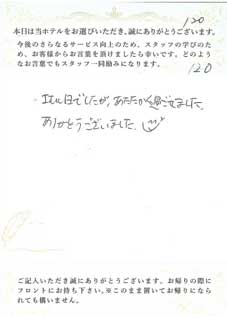 120
本日は当ホテルをお選びいただき、誠にありがとうございます。
今後のさらなるサービス向上のため、スタッフの学びのため、お客様からお言葉を頂けましたら幸いです。どのようなお言葉でもスタッフ一同励みになります。
120
でしたが、あたたかく過ごせました。
ありがとうございました。
ご記入いただき誠にありがとうございます。お帰りの際にフロントにお持ち下さい。※このまま置いてお帰りになられても構いません。